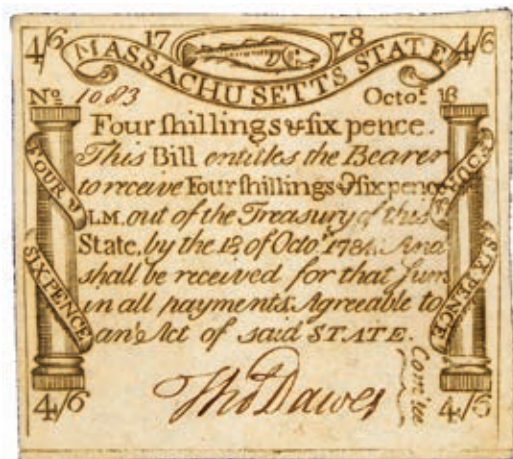 4/6 17 78 4/6
MASSACHUSETTS STATE
No. 1083 Octor. 18
Four ſhillings & ſix pence.
This Bill entitles the Bearer
to receive Four ſhillings & ſix pence
L.M. out of the Treasury of this
State, by the 18 of Octor. 1784. And
shall be received for that Sum
in all payments Agreeable to
an Act of said STATE.
FOUR &
SIX PENCE
FOUR S &
SIX PENCE
Thos Dawes
Com'tee
4/6 4/6